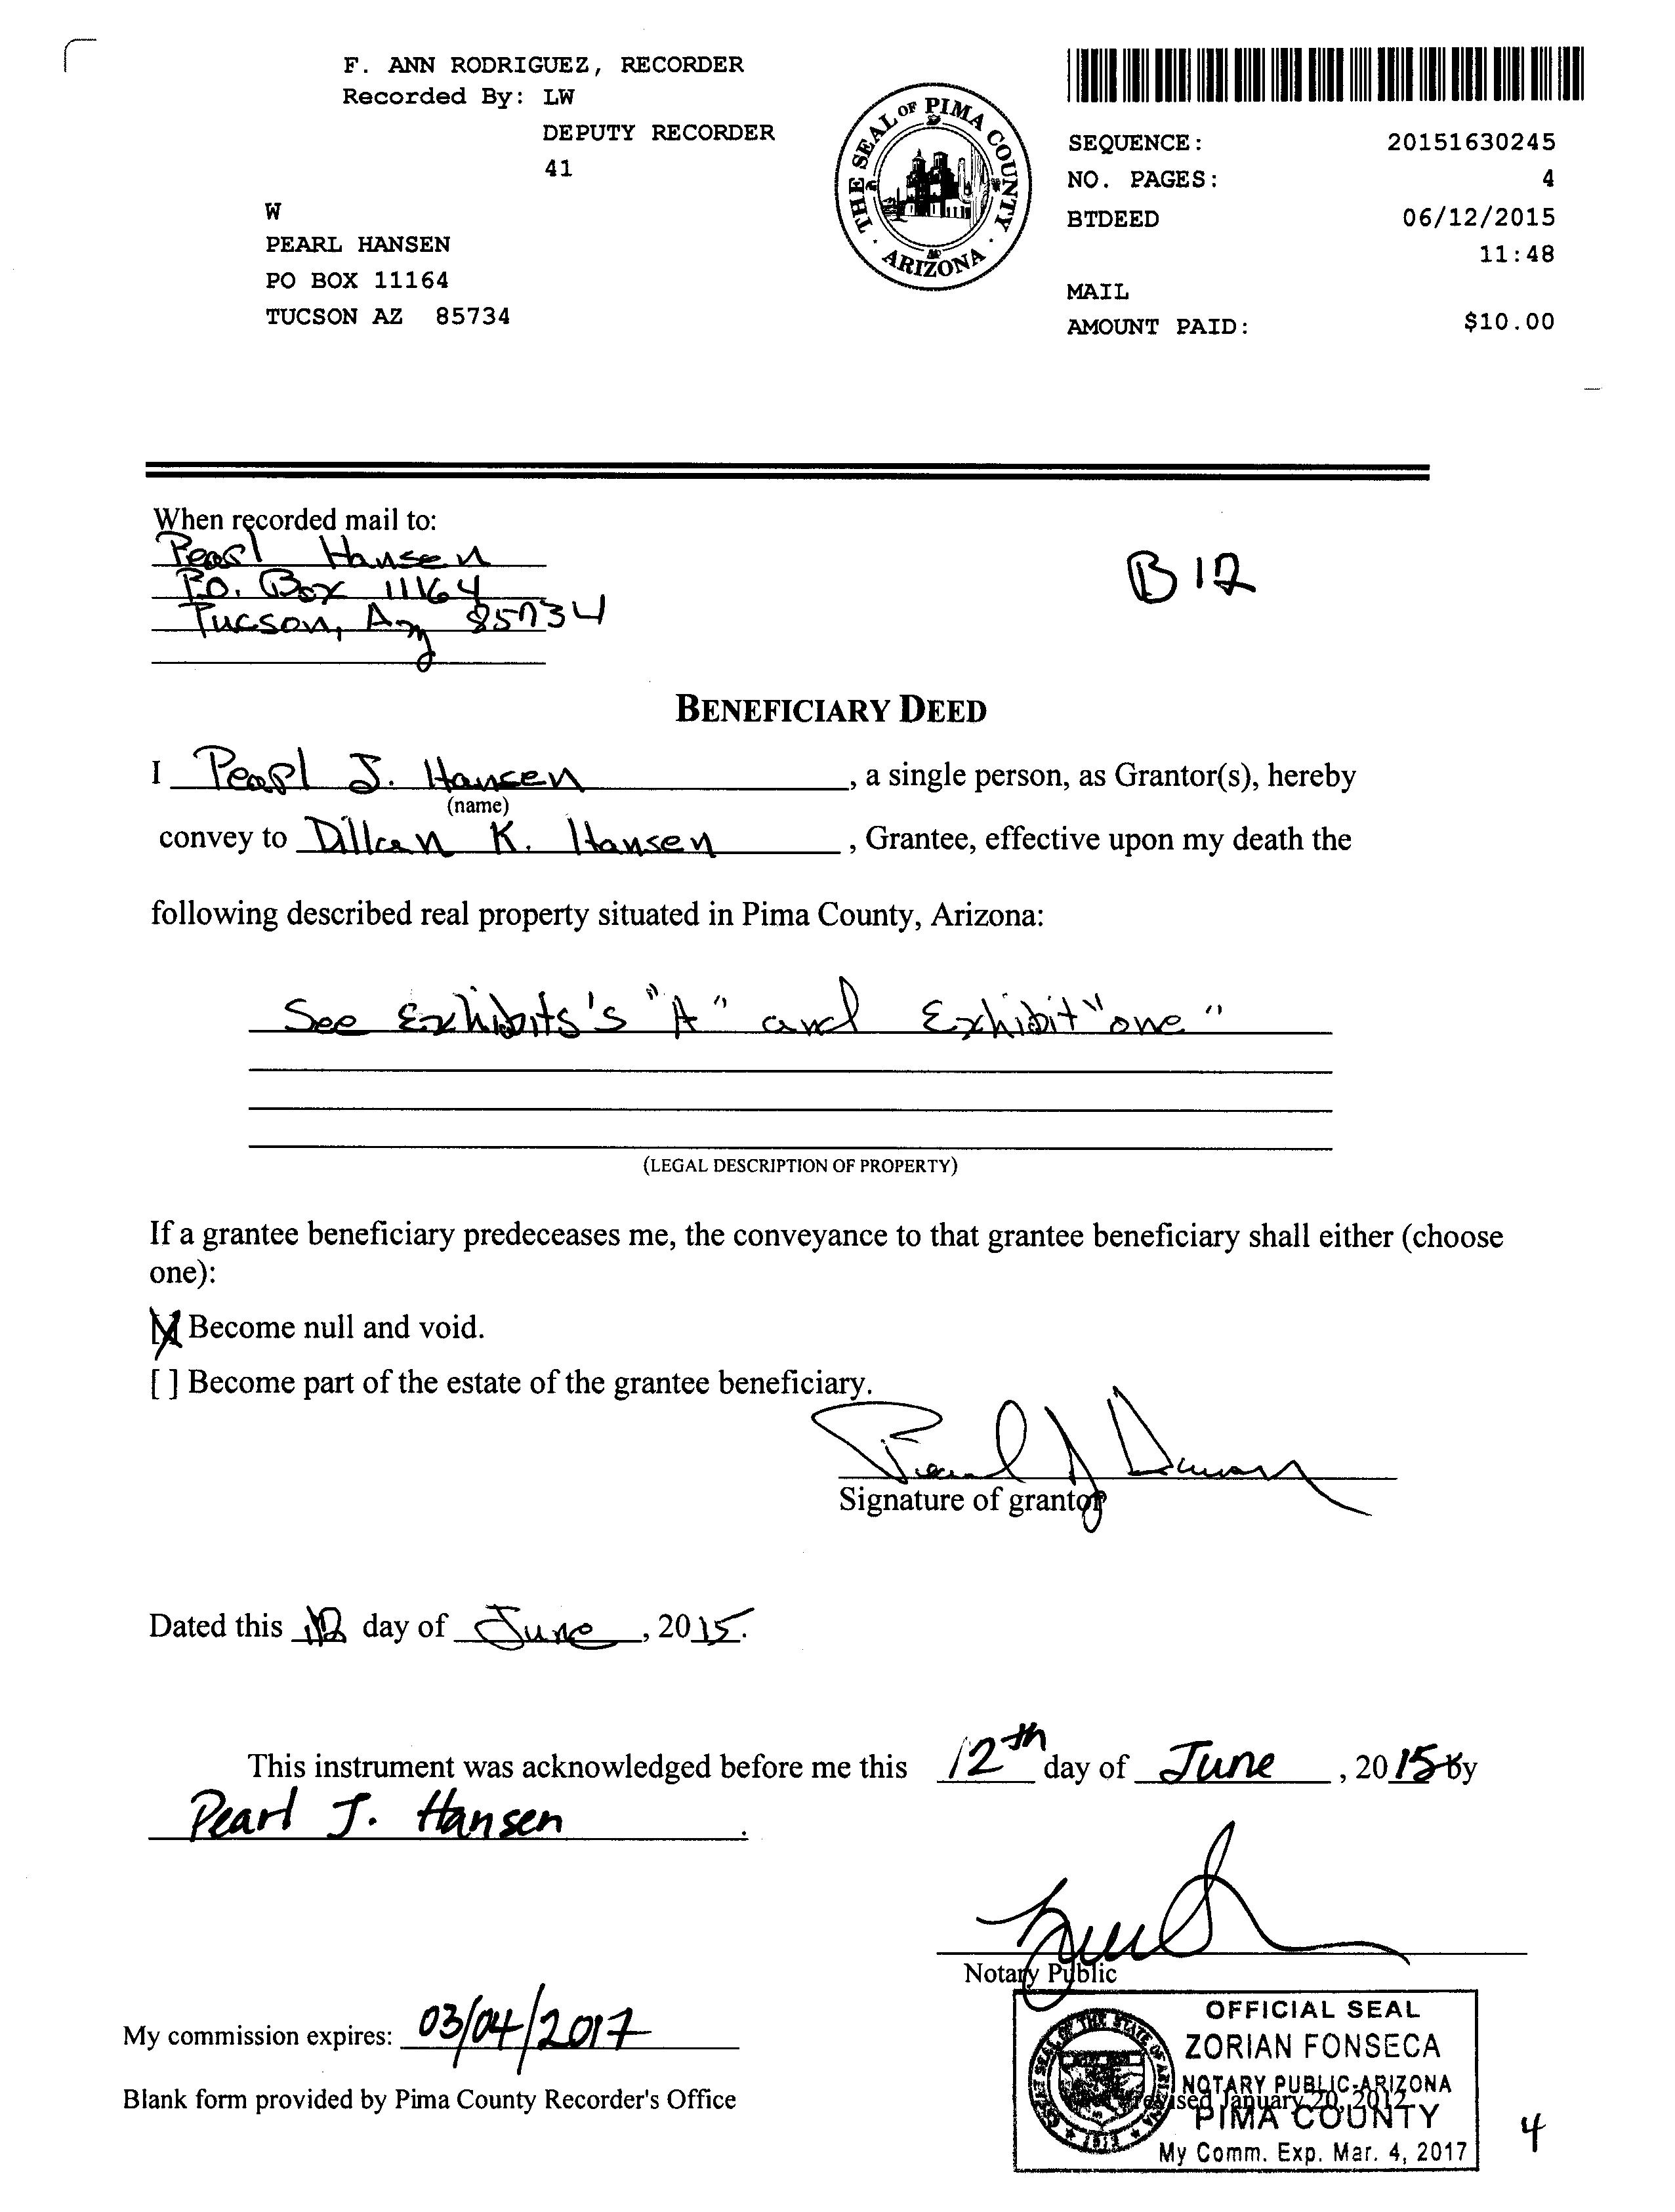 F. ANN RODRIGUEZ, RECORDER
Recorded By: LW
DEPUTY RECORDER
41
W
PEARL HANSEN
PO BOX 11164
TUCSON AZ 85734
THE SEAL OF PIMA COUNTY
ARIZONA
SEQUENCE: 20151630245
NO. PAGES: 4
BTDEED 06/12/2015
11:48
MAIL
AMOUNT PAID: $10.00
When recorded mail to:
Pearl Hansen
P.O. Box 11164
Tucson, Az 85734
B 12
BENEFICIARY DEED
I Pearl J. Hansen, a single person, as Grantor(s), hereby
(name)
convey to Dillan K. Hansen, Grantee, effective upon my death the
following described real property situated in Pima County, Arizona:
See Exhibits's "A" and Exhibit "one"
(LEGAL DESCRIPTION OF PROPERTY)
If a grantee beneficiary predeceases me, the conveyance to that grantee beneficiary shall either (choose
one):
[X] Become null and void.
[ ] Become part of the estate of the grantee beneficiary.
Pearl J Hansen
Signature of grantor
Dated this 12 day of June, 2015.
This instrument was acknowledged before me this 12th day of June, 2015 by
Pearl J. Hansen.
Notary Public
My commission expires: 03/04/2017
Blank form provided by Pima County Recorder's Office
revised January 20, 2012
OFFICIAL SEAL
ZORIAN FONSECA
NOTARY PUBLIC-ARIZONA
PIMA COUNTY
My Comm. Exp. Mar. 4, 2017
4